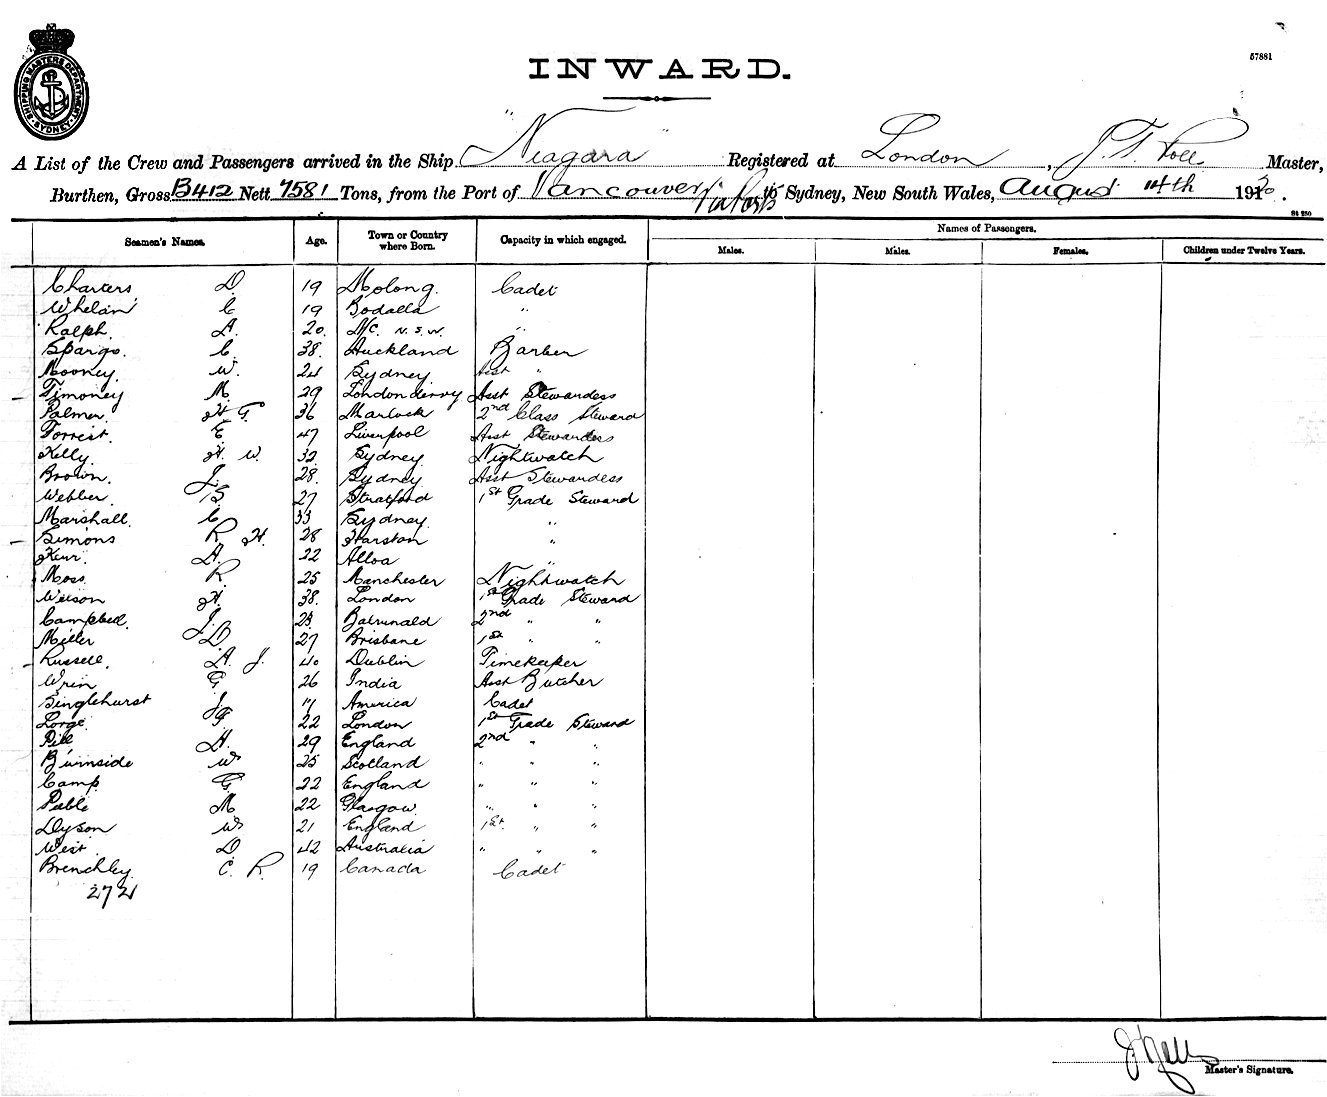 SHIPPING MASTERS DEPARTMENT SYDNEY
57881
INWARD.
A List of the Crew and Passengers arrived in the Ship "Niagara" Registered at London, J. T. Rolls Master,
Burthen, Gross 13412 Nett 7581 Tons, from the Port of Vancouver via Ports to Sydney, New South Wales, August 14th 1920.
St 250
Seamen's Names. Age. Town or Country where Born. Capacity in which engaged. Names of Passengers.
Males. Males. Females. Children under Twelve Years.
Charters D. 19 Molong. Cadet
Whelan C 19 Bodalla "
Ralph. A. 20. N/C. N.S.W. "
Spargo. C. 38. Auckland Barber
Mooney. W. 24 Sydney Asst "
Timoney M 29 Londonderry Asst Stewardess
Palmer H G. 36 2nd Class Steward
Forrest. E. 47 Liverpool Asst Stewardess
Kelly H. W. 32 Sydney Nightwatch
Brown. J. 28. Sydney Asst Stewardess
Webber B 27 Stratford 1st Grade Steward
Marshall. C 33 Sydney. "
Simons R H. 28 Harston "
Kerr. A. 22 Alloa "
Moss. R. 25 Manchester Nightwatch
Wilson H. 38. London 1st Grade Steward
Campbell. J. 23. Balranald 2nd " "
Miller D. 27 Brisbane 1st " "
Russell. A. J. 40 Dublin Timekeeper
Wrin G. 26 India Asst Butcher
Singlehurst J. 17 America Cadet
Lorge F 22 London 1st Grade Steward
Pill A. 29 England 2nd " "
Burnside W 25 Scotland " " "
Camp G. 22 England " " "
Peble M 22 Glasgow. " " "
Dyson W 21 England 1st " "
West D 42 Australia " " "
Brenchley. C. R. 19 Canada Cadet
272
Master's Signature.